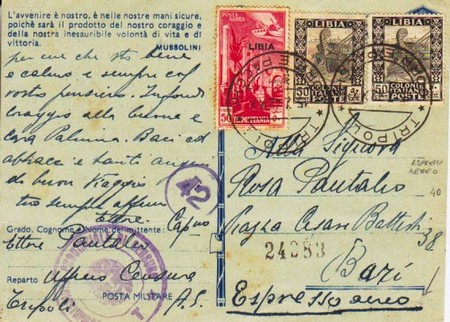 L'avvenire è nostro, è nelle nostre mani sicure,
poichè sarà il prodotto del nostro coraggio e
della nostra inesauribile volontà di vita e di
vittoria.
MUSSOLINI
per cui che sto bene
e calmo e sempre col
vostro pensiero. Infondi
coraggio alla buona e
cara Palmira. Baci ed
abbracci e tanti auguri
di buon viaggio
tuo sempre
Ettore
Grado, Cognome e Nome del mittente: Cap.no
Ettore Pantaleo
Reparto Ufficio Censura
Tripoli POSTA MILITARE A.S.
42
POSTA AEREA
LIBIA
50
LIBIA
50
POSTE
LIBIA
50
POSTE
TRIPOLI
TRIPOLI
Alla Signora
Rosa Pantaleo
Piazza Cesare Battisti 38
24383
Bari
Espresso aereo
ESPRESSO
AEREO
40